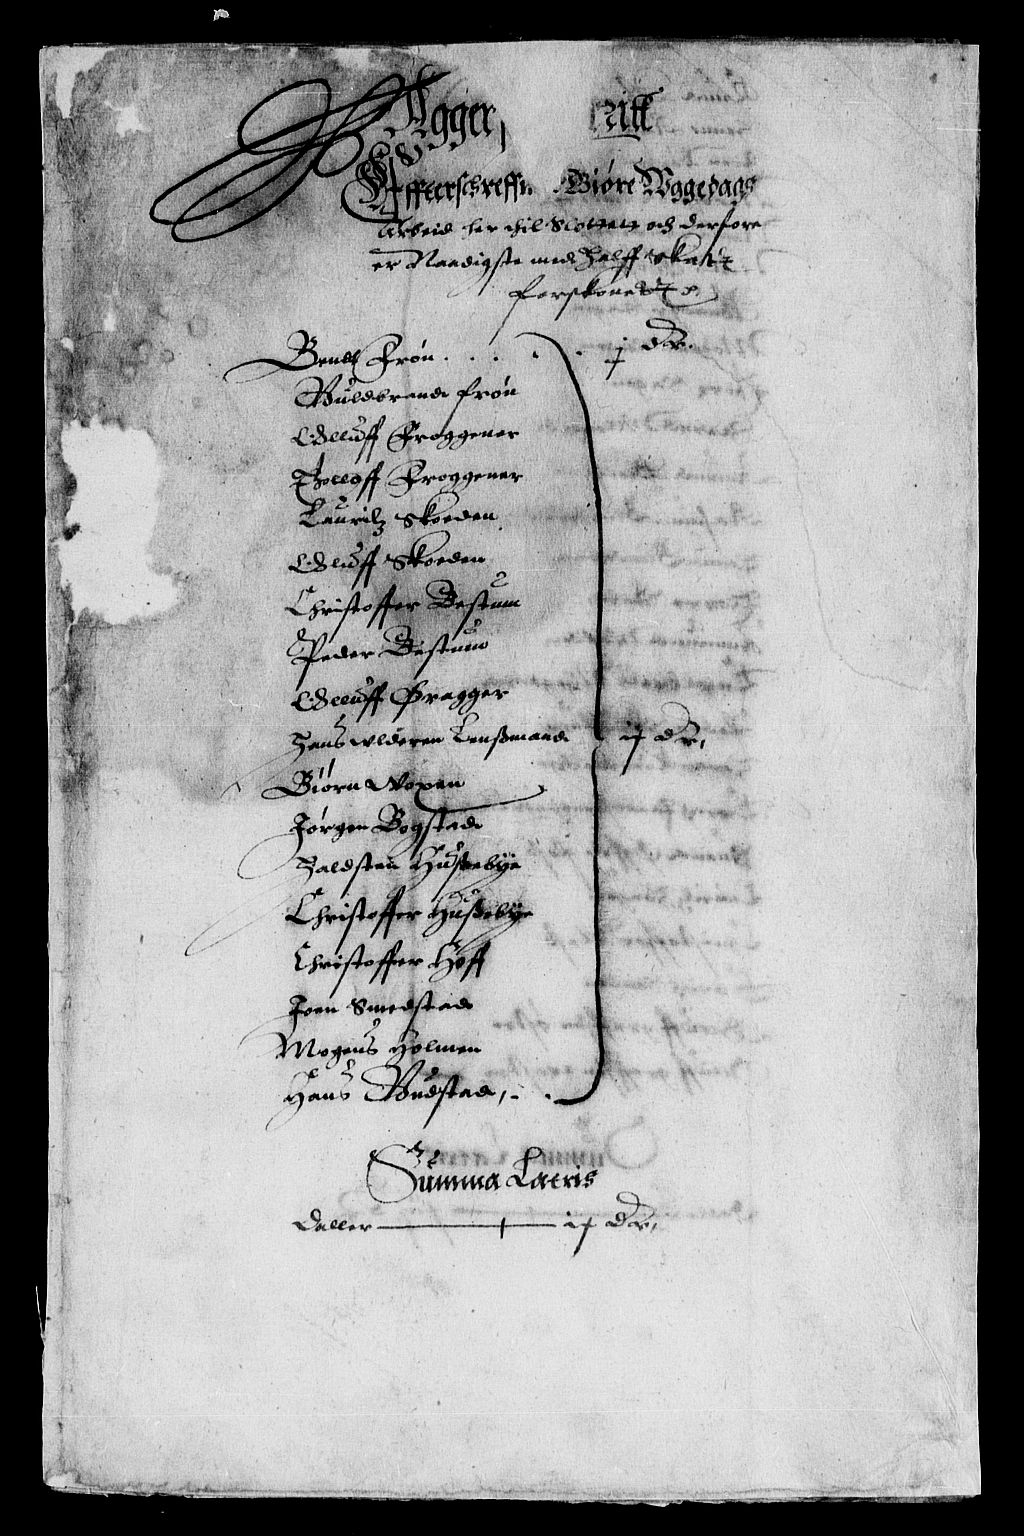 Agger,
Effterschreffn Giøre Wggedags
Arbeid her thil Slottett och derfore
er Naadigste med halff Skatt
forskonett
Bendt Frøn . . . . . j dr.
Guldbrand frøn
Olluff Froggener
Tolloff Froggener
Lauritz Skøeden
Oluff Skøeden
Christoffer Bestum
Peder Bestum
Olluff Gragger
Hans Lensmand ij dr,
Biørn Woxen
Jørgen Bogstad
Haldsten Hussebye
Christoffer Hussebye
Christoffer Hoff
Joen Smedstad
Mogens Holmen
Hans Gudstad, . .
Summa Lateris
Daller ij dr,